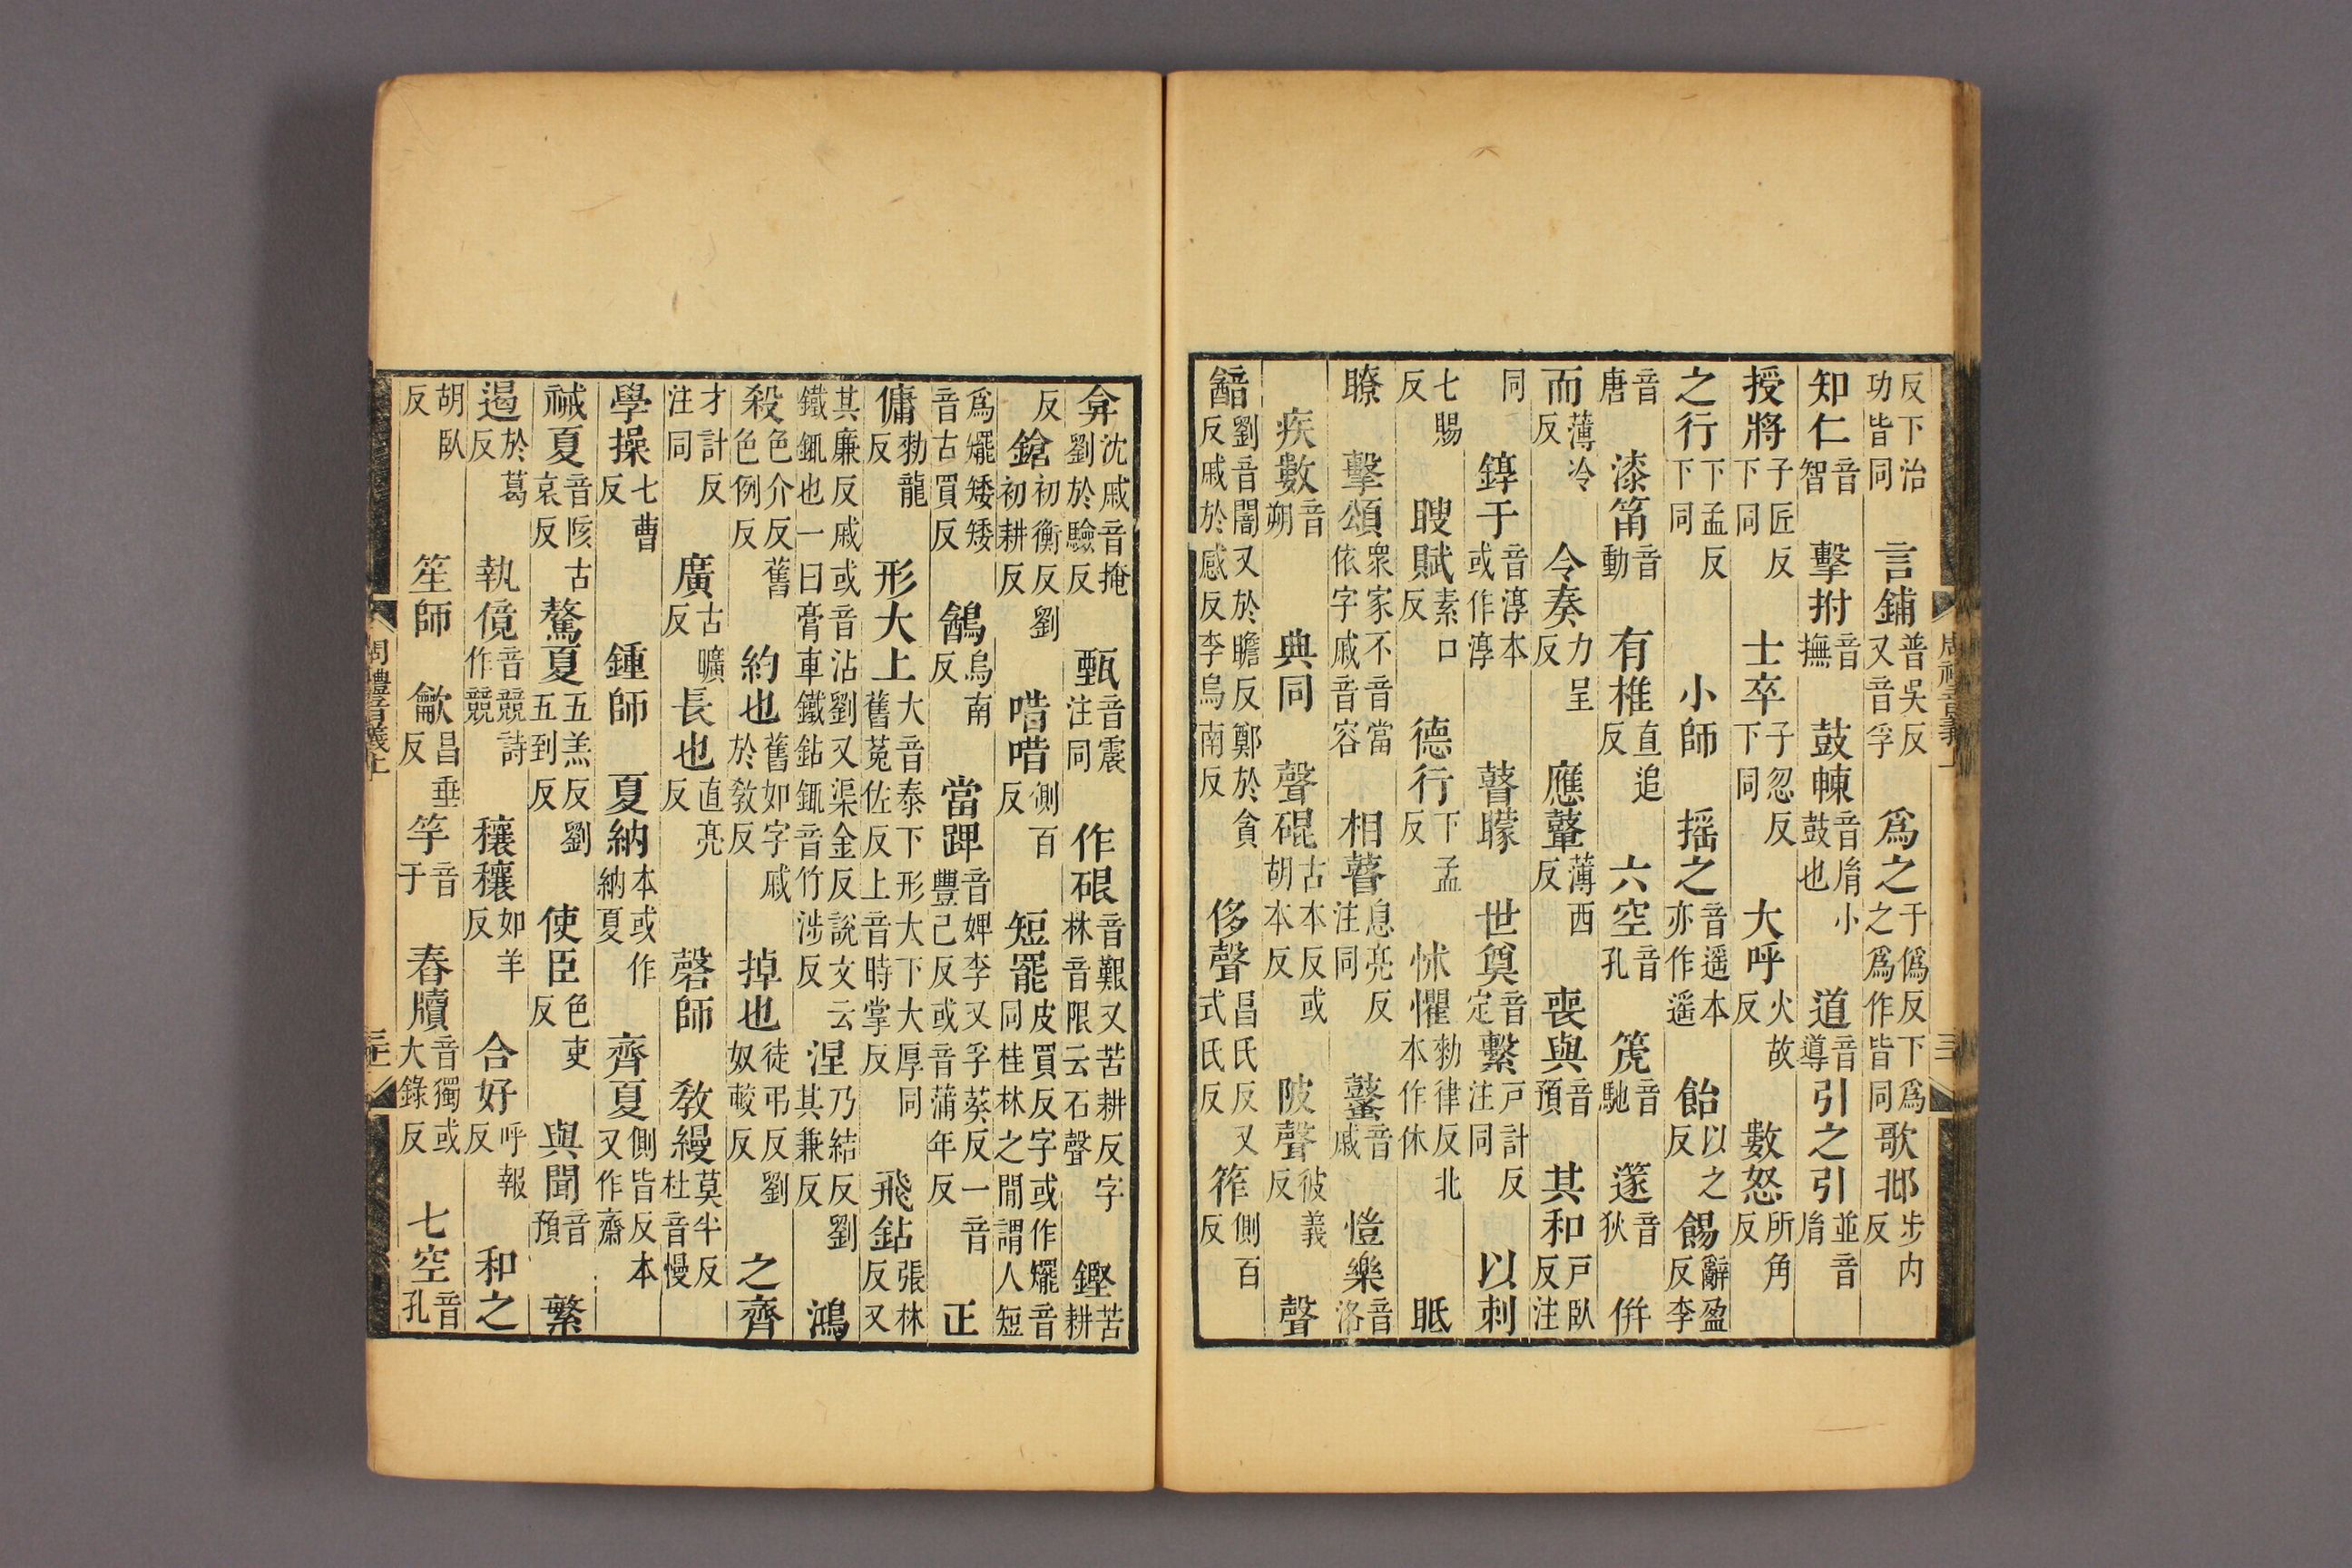 反下治功皆同 言鋪普吳反又音孚 爲之于僞反下爲之爲作皆同 歌邶步内反
知仁音智 擊拊音撫 鼓㯥音胤小鼓也 道音導 引之引並音胤
授將子匠反下同 士卒子忽反下同 大呼火故反 數怒所角反
之行下孟反下同 小師 搖之音遥本亦作遥 飴以之反 餳辭盈反李
音唐 漆筩音動 有椎直追反 六空音孔 箎音馳 篴音狄 倂
而薄冷反 令奏力呈反 應鼙薄西反 喪與音預 其和戸臥反注
同 錞于音淳本或作淳 瞽矇 世奠音定 繫戸計反注同 以刺
七賜反 瞍賦素口反 德行下孟反 怵懼勑律反北本作休 眂
瞭 擊頌衆家不音當依字戚音容 相瞽息亮反注同 鼜音戚 愷樂音洛
疾數音朔 典同 聲硍古本反或胡本反 陂聲彼義反 聲
韽劉音闇又於瞻反鄭於貪反戚於感反李烏南反 侈聲昌氏反又式氏反 筰側百反
弇沈戚音掩劉於驗反 甄音震注同 作硍音艱又苦耕反字林音限云石聲 鏗苦耕
反 鎗初衡反劉初耕反 唶唶側百反 短罷皮買反字或作䎱音同桂林之閒謂人短
爲䎱矮矮音古買反 鵨烏南反 當踝音婢李又孚葵反一音豐己反或音蒲年反 正
傭勑龍反 形大上大音泰下形大下大厚同舊菟佐反上音時掌反 飛鉆張林反又
其廉反戚或音沾劉又渠金反説文云鐵鉔也一曰膏車鐵鉆鉔音竹渉反 涅乃結反劉其兼反 鴻
殺色介反舊色例反 約也舊如字戚於敎反 掉也徒弔反劉奴較反 之齊
才計反注同 廣古曠反 長也直亮反 磬師 敎縵莫半反杜音慢
學操七曹反 鍾師 夏納本或作納夏 齊夏側皆反本又作齋
祴夏音陔古哀反 驁夏五羔反劉五到反 使臣色吏反 與聞音預 繁
遏於葛反 執傹音競詩作競 穰穰如羊反 合好呼報反 和之
胡臥反 笙師 龡昌垂反 竽音于 舂牘音獨或大錄反 七空音孔
周禮音義上